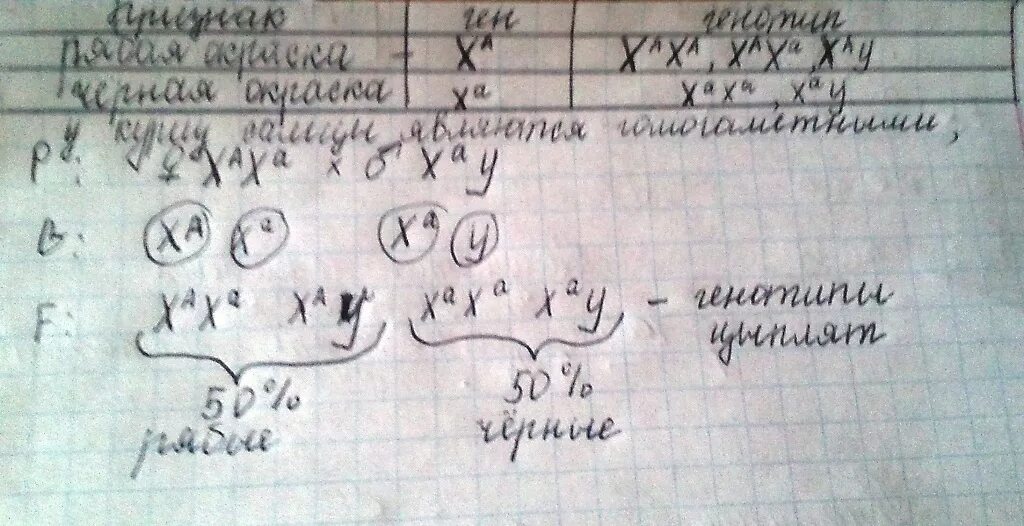 Признак ген генотип
рябая окраска - Xᴬ XᴬXᴬ, XᴬXᵃ, Xᴬy
чёрная окраска xᵃ xᵃxᵃ, xᵃy
у куриц самцы являются гомогаметными,
P: ♀ XᴬXᵃ x ♂ Xᵃy
Xᴬ Xᵃ Xᵃ y
F: XᴬXᵃ Xᴬy XᵃXᵃ Xᵃy - генотипы
цыплят
50% 50%
рябые чёрные